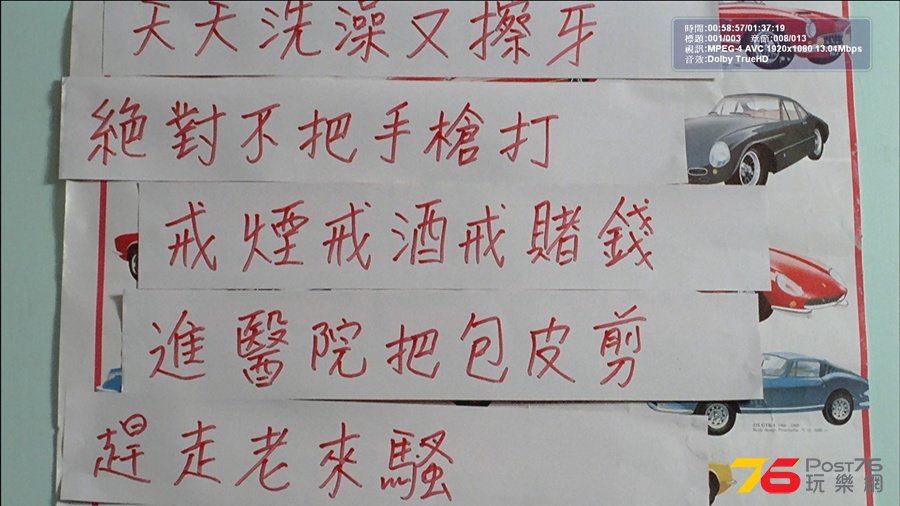 天天洗澡又擦牙
時間:00:58:57/01:37:19
標題:001/003 章節:008/013
視訊:MPEG-4 AVC 1920x1080 13.04Mbps
音效:Dolby TrueHD
絕對不把手槍打
戒煙戒酒戒賭錢
進醫院把包皮剪
趕走老來騷
76 POST76
玩樂網